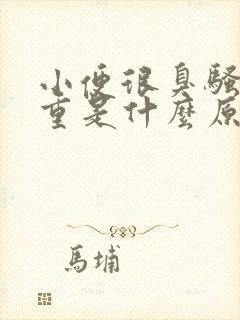 小便很臭騷
重是什麼原
馬埔